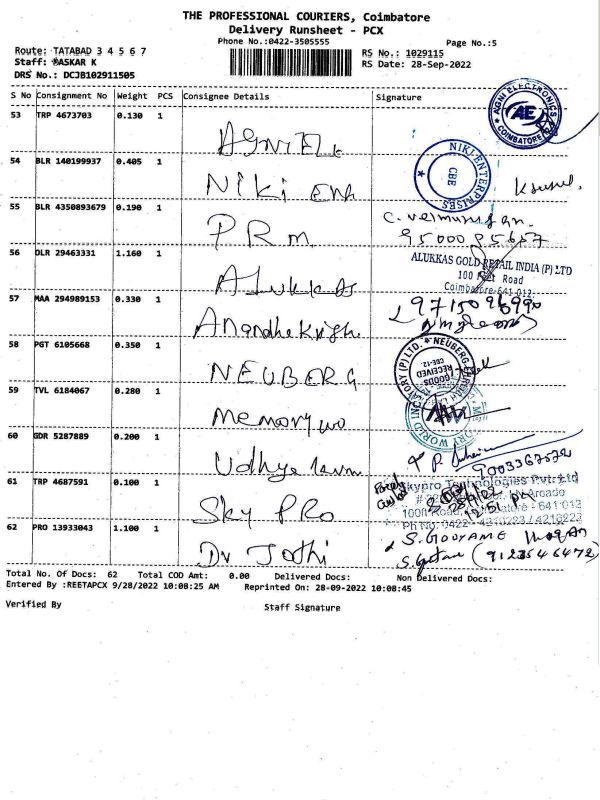 THE PROFESSIONAL COURIERS, Coimbatore
Delivery Runsheet - PCX
Phone No.:0422-3505555
Page No.:5
Route: TATABAD 3 4 5 6 7
RS No.: 1029115
Staff: BASKAR K
RS Date: 28-Sep-2022
DRS No.: DCJB102911505
S No Consignment No Weight PCS Consignee Details Signature
53 TRP 4673703 0.130 1
AGNI ELECTRONICS
AE
COIMBATORE
AGNI ELE
54 BLR 140199937 0.405 1
NIKI ENTERPRISES
CBE
Niki Ent
55 BLR 4350893679 0.190 1
PRM
56 DLR 29463331 1.160 1
ALUKKAS GOLD RETAIL INDIA (P) LTD
100 Feet Road
Coimbatore-641 012.
Alukkas
57 MAA 294989153 0.330 1
58 PGT 6105668 0.350 1
GOODS RECEIVED
CBE-12.
NEUBERG
59 TVL 6184067 0.280 1
Memory wo
60 GDR 5287889 0.200 1
9003367572
61 TRP 4687591 0.100 1
Skypro Technologies Pvt. Ltd
Sky PRO
62 PRO 13933043 1.100 1
Dr Jothi
Total No. Of Docs: 62 Total COD Amt: 0.00 Delivered Docs: Non Delivered Docs:
Entered By :REETAPCX 9/28/2022 10:08:25 AM Reprinted On: 28-09-2022 10:08:45
Verified By Staff Signature